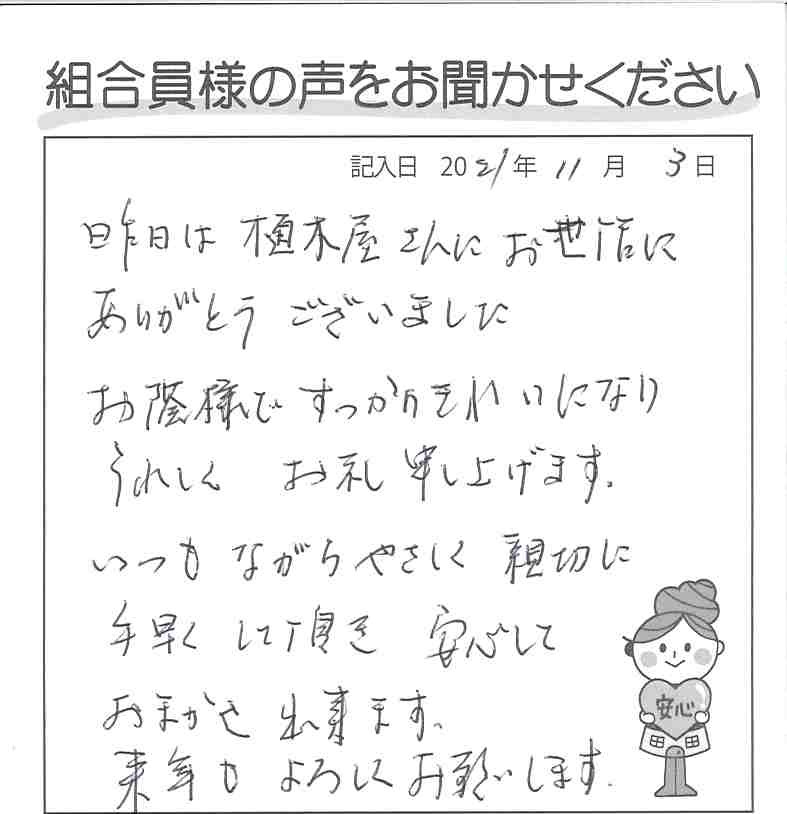 組合員様の声をお聞かせください
記入日 2021年 11月 3日
昨日は 植木屋さんに お世話に
ありがとう ございました
お陰様で すっかりきれいになり
うれしく お礼申し上げます。
いつも ながらやさしく 親切に
手早く して頂き 安心して
おまかせ 出来ます。
来年も よろしくお願いします.
安心